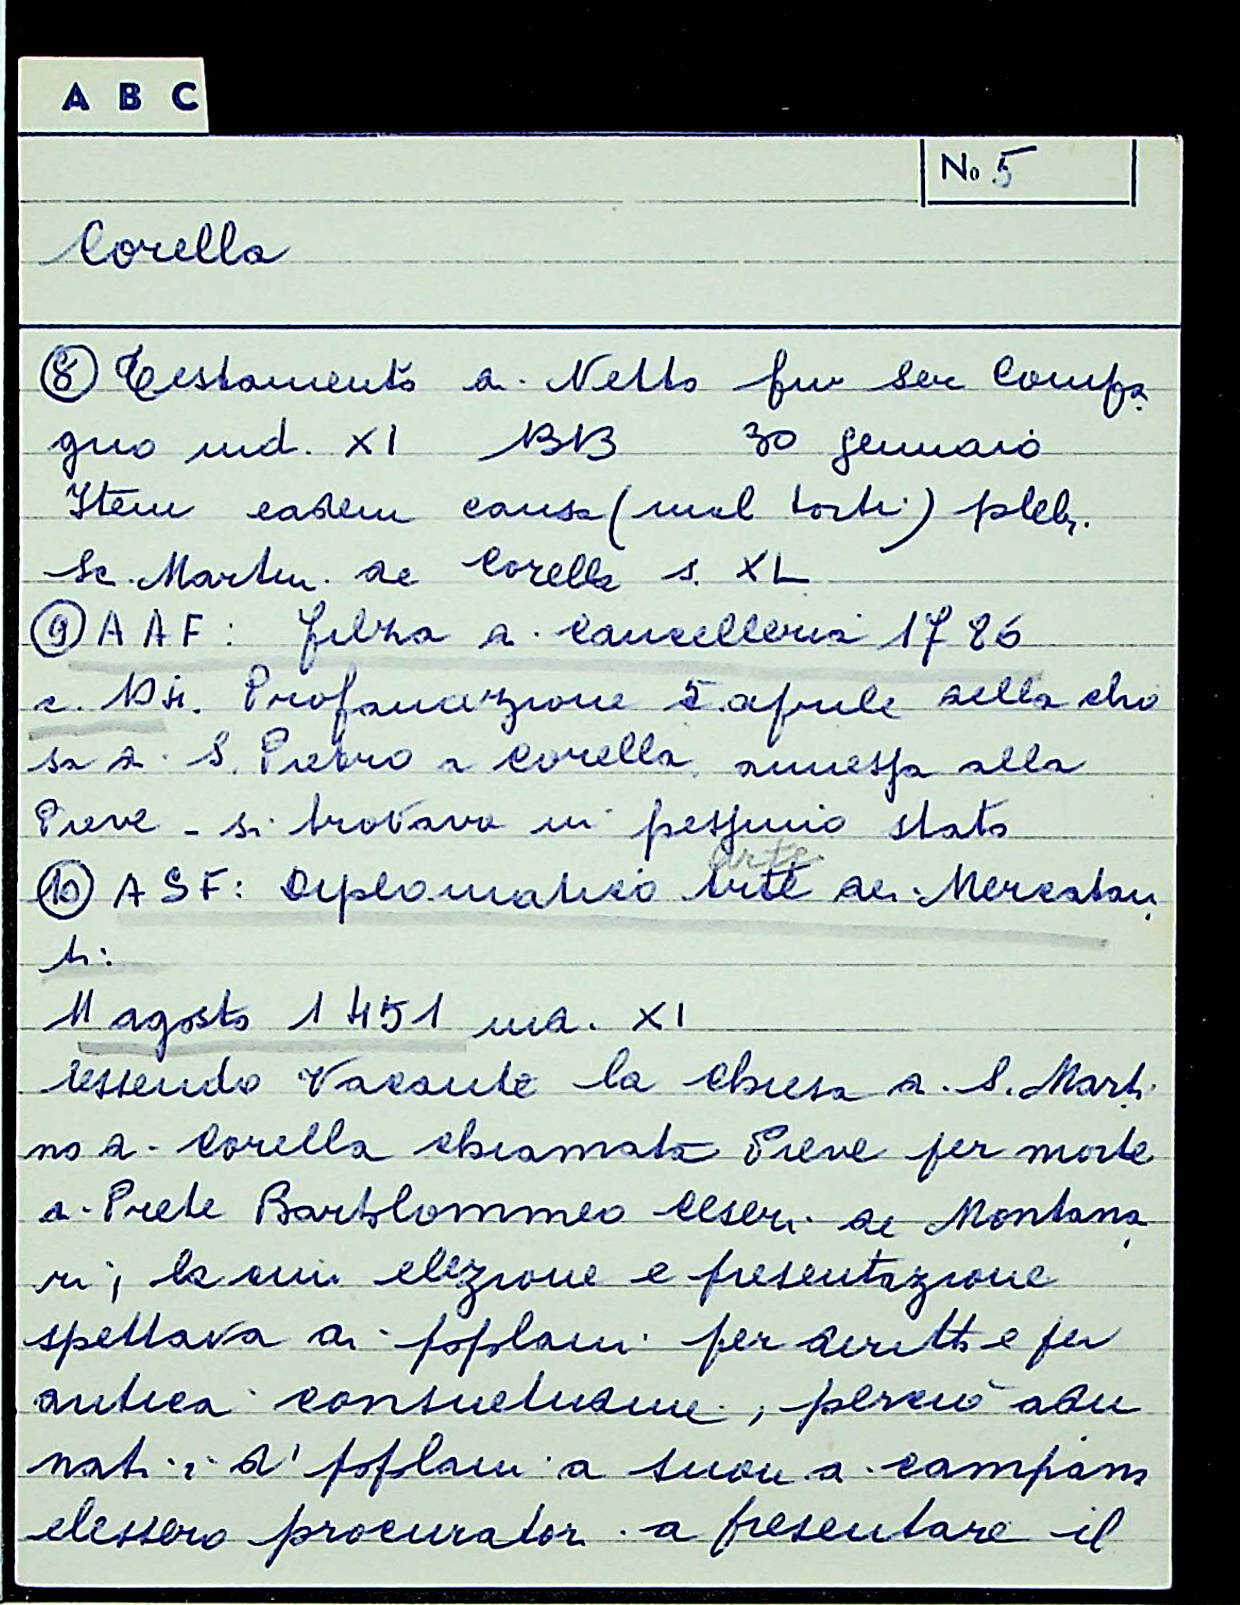 A B C
No 5
Corella
⑧ Testamento di Netto fu ser Compa
gno ind. XI 1313 30 gennaio
Item eadem causa (mal torti) pleb.
Sc. Martin. de Corella s. XL
⑨ A A F: filza di Cancelleria 1786
Profanazione 5 aprile della chie
sa di S. Pietro a Corella annessa alla
Pieve - si trovava in pessimo stato
⑩ A S F: Diplomatico Arte arte dei Mercatan
ti:
11 agosto 1451 ind. XI
essendo vacante la chiesa di S. Marti
no a Corella chiamata Pieve per morte
di Prete Bartolommeo de Montana
ri; la cui elezione e presentazione
spettava ai popolani per diritto e per
antica consuetudine, perciò adu
nati i d' popolani a suon di campana
elessero procuratori a presentare il